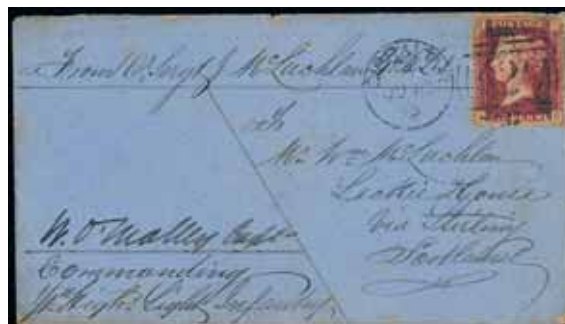 From Sergt J McLachlan
To
Mr Wm McLachlan
Leckie House
Via Stirling
Scotland
W. O'Malley Captn
Commanding
Highd Light Infantry